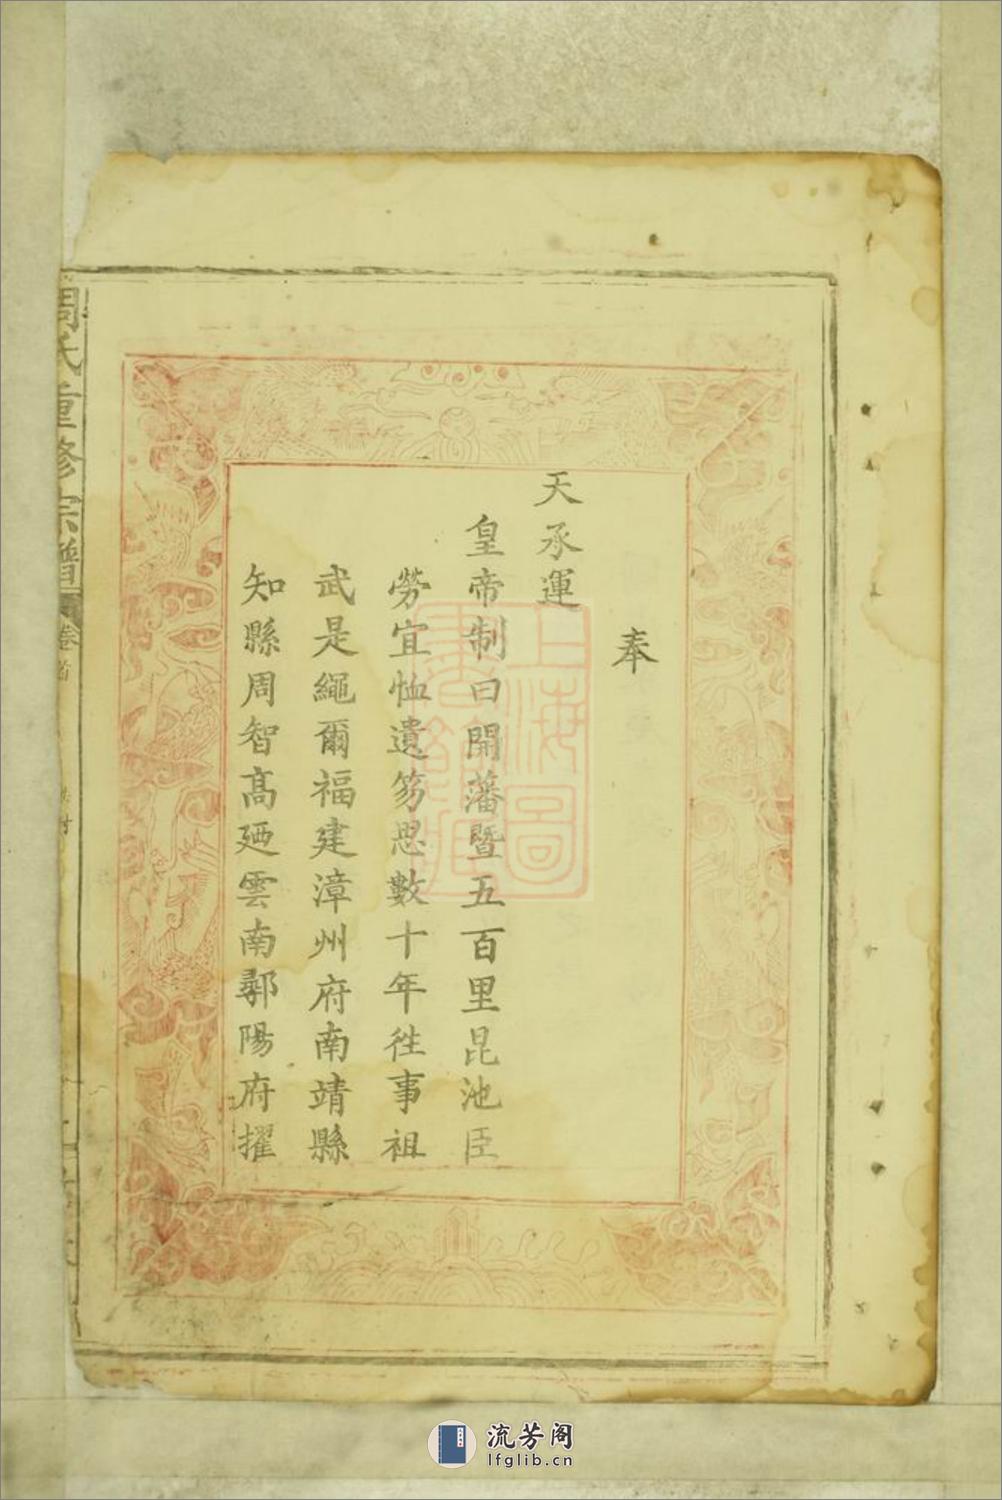 奉
天承運
皇帝制曰開藩暨五百里昆池臣
勞宜恤遺笏思數十年徃事祖
武是繩爾福建漳州府南靖縣
知縣周智高廼雲南鄩陽府擢
周氏重修宗譜
卷首
上海圖
書館藏
流芳阁
lfglib.cn